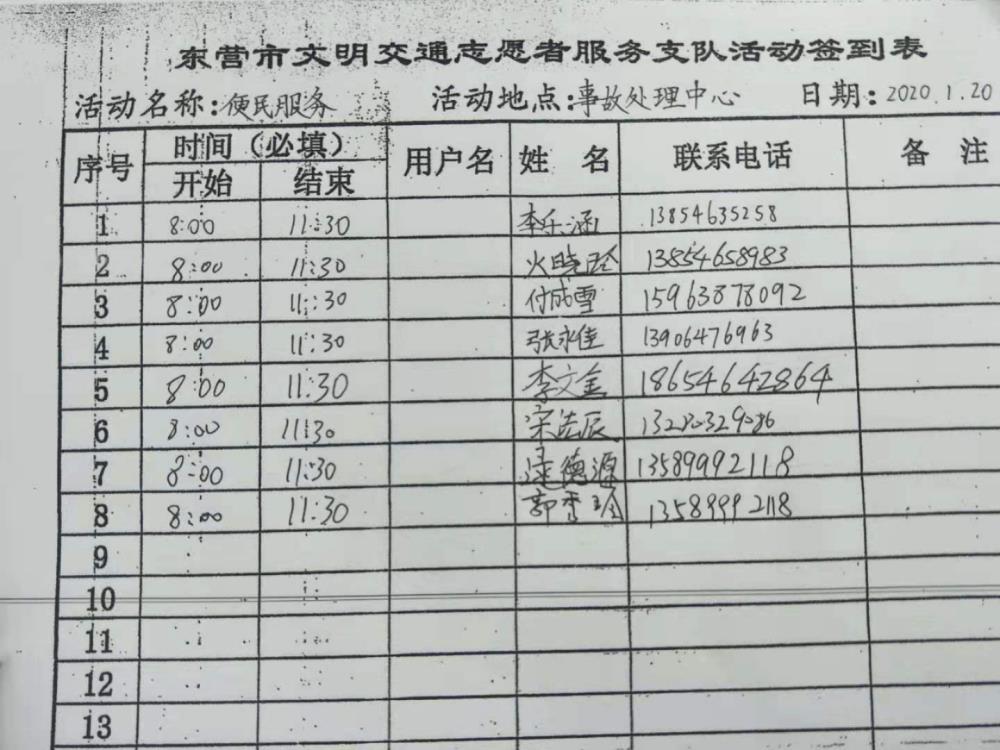 东营市文明交通志愿者服务支队活动签到表
活动名称:便民服务 活动地点:事故处理中心 日期:2020.1.20
序号 时间(必填) 用户名 姓名 联系电话 备注
开始 结束
1 8:00 11:30 李乐涵 13854635258
2 8:00 11:30 火晓玲 13854658983
3 8:00 11:30 付成雪 15963878092
4 8:00 11:30 张永佳 13906476963
5 8:00 11:30 李文金 18654642864
6 8:00 11:30 宋法辰
7 8:00 11:30 德源 13589992118
8 8:00 11:30 郭秀 13589992118
9
10
11
12
13